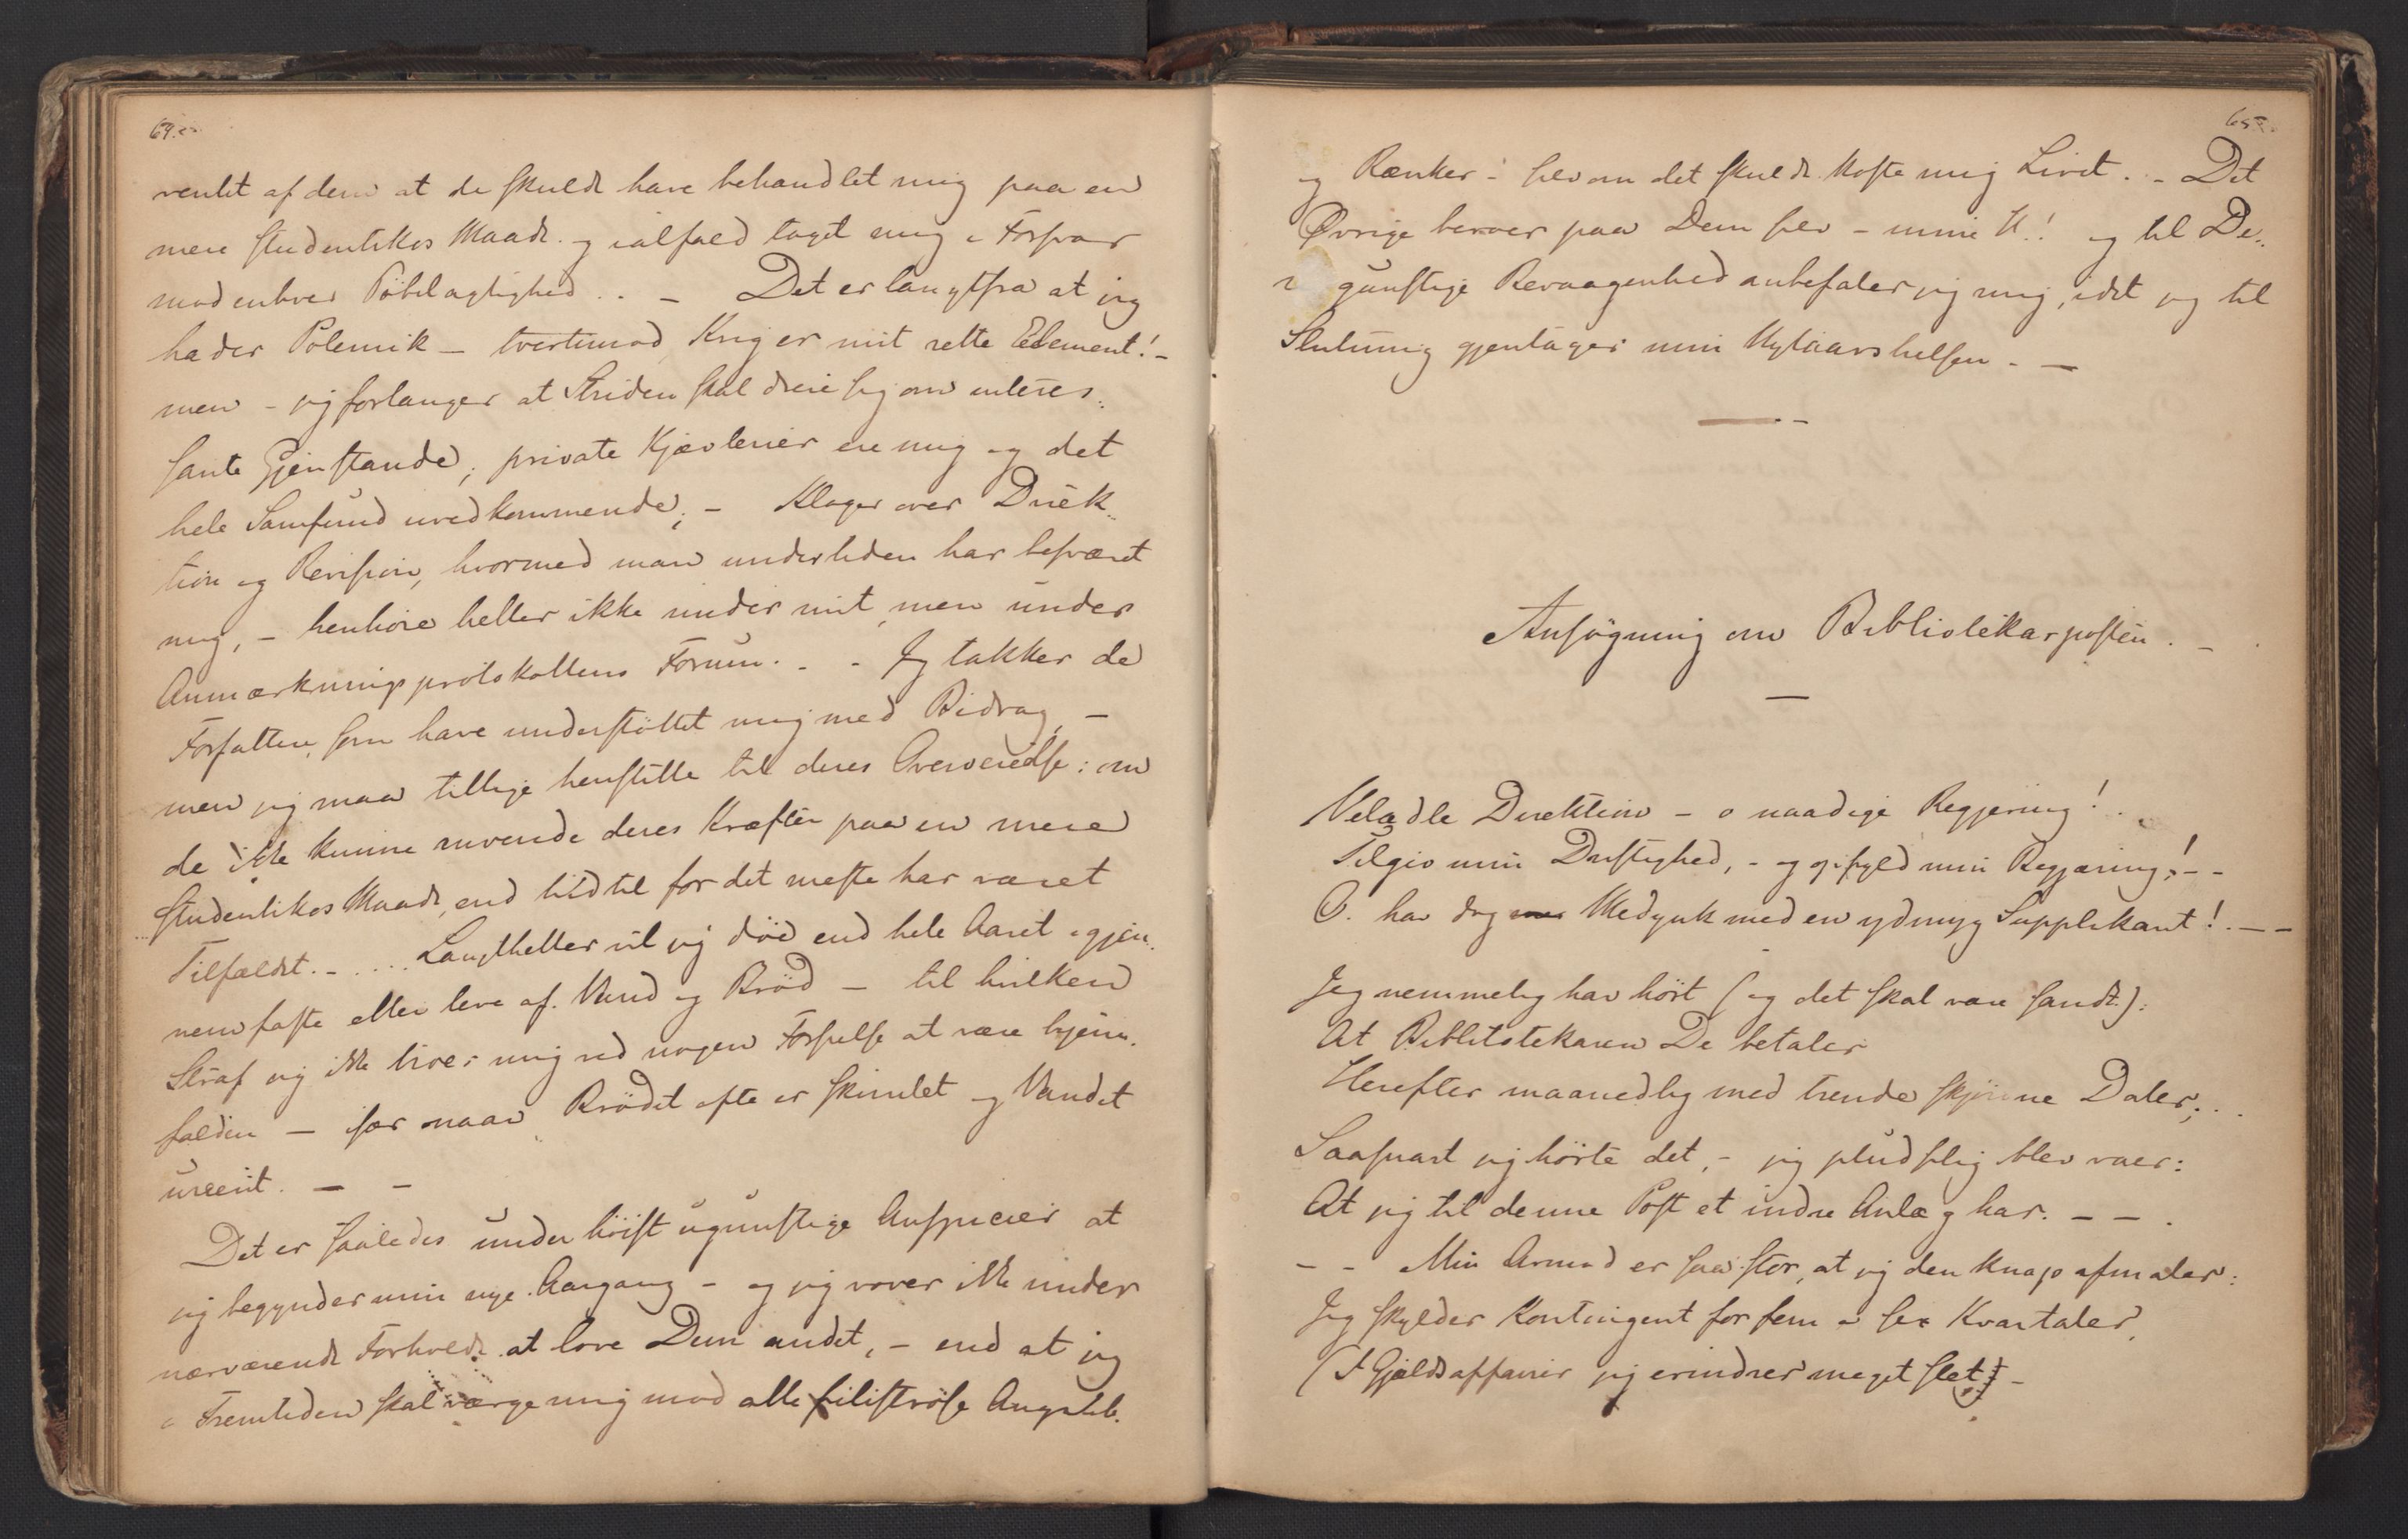 64.
ventet af dem at de skulde have behandlet mig paa en
mere studentikos Maade og ialfald taget mig i Forsvar
mod enhver Pöbelagtighed. . – Det er langtfra at jeg
hader Polemik – tvertimod, Krig er mit rette Element! –
men – jeg forlanger at Striden skal dreie sig om interes-
sante Gjenstande; private Kjævlerier ere mig og det
hele Samfund uvedkommende; – Klager over Direk-
tion og Revision, hvormed man undertiden har besværet
mig, – henhöre heller ikke under mit, men under
Anmærkningsprotokollens Forum. . – Jeg takker de
Forfattere, som have understöttet mig med Bidrag, –
men jeg maa tillige henstille til deres Overveielse: om
de ikke kunne anvende deres Kræfter paa en mere
studentikos Maade, end hidtil for det meste har været
Tilfældet. – . . . . Langtheller vil jeg döe end hele Aaret igjen-
nem faste eller leve af Vand og Bröd – til hvilken
Straf jeg ikke troer mig ved nogen Forseelse at være hjem-
falden – især naar Brödet ofte er skimlet og Vandet
ureent. – –
Det er saaledes under höist ugunstige Auspicier at
jeg begynder min nye Aargang – og jeg vover ikke under
nærværende Forholde at love Dem andet, – end at jeg
i Fremtiden skal værge mig mod alle filiströse Angreb
65.
og Rænker – selv om det skulde koste mig Livet. . – Det
Øvrige beroer paa Dem selv – mine H.! og til De-
r gunstige Bevaagenhed anbefaler jeg mig, idet jeg til
Slutning gjentager min Nytaarshilsen. – –
Ansögning om Bibliotekarposten. –
Velædle Direktion – o naadige Regjering!
Tilgiv min Dristighed, – og opfyld min Begjæring! – –
O. hav dog Medynk med en ydmyg Supplikant! . – –
Jeg nemmelig har hört (og det skal være sandt):
At Bibliotekaren De betaler
Herefter maanedlig med trende skjönne Daler; . .
Saasnart jeg hörte det, – jeg pludselig blev vaer:
At jeg til denne Post et indre Anlæg har. – – .
– – Min Armod er saa stor, at jeg den knap afmaler:
Jeg skylder Kontingent for fem a sex Kvartaler,
(I Gjældsaffairer jeg erindrer meget slet) –